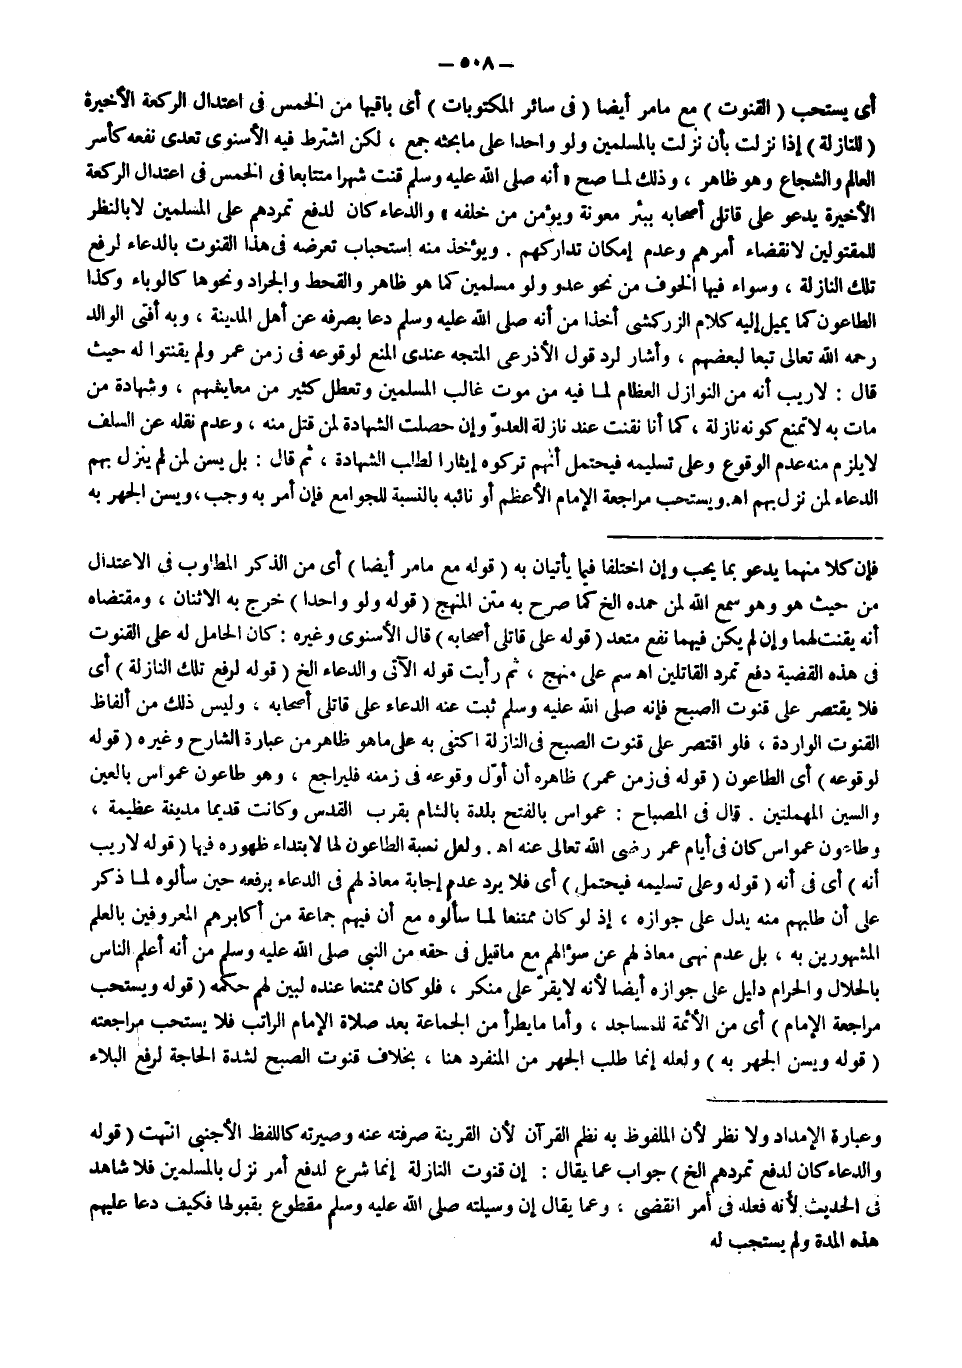 — ٥٠٨ —
أى يستحب ( القنوت ) مع مامر أيضا ( فى سائر المكتوبات ) أى باقيها من الخمس فى اعتدال الركعة الأخيرة
( للنازلة ) إذا نزلت بأن نزلت بالمسلمين ولو واحدا على مابحثه جمع ، لكن اشترط فيه الأسنوى تعدى نفعه كأسر
العالم والشجاع وهو ظاهر ، وذلك لما صح « أنه صلى الله عليه وسلم قنت شهرا متتابعا فى الخمس فى اعتدال الركعة
الأخيرة يدعو على قاتلى أصحابه ببئر معونة ويؤمن من خلفه » والدعاء كان لدفع تمردهم على المسلمين لابالنظر
للمقتولين لانقضاء أمرهم وعدم إمكان تداركهم . ويؤخذ منه استحباب تعرضه فى هذا القنوت بالدعاء لرفع
تلك النازلة ، وسواء فيها الخوف من نحو عدو ولو مسلمين كما هو ظاهر والقحط والجراد ونحوها كالوباء وكذا
الطاعون كما يميل إليه كلام الزركشى أخذا من أنه صلى الله عليه وسلم دعا بصرفه عن أهل المدينة ، وبه أفتى الوالد
رحمه الله تعالى تبعا لبعضهم ، وأشار لرد قول الأذرعى المتجه عندى المنع لوقوعه فى زمن عمر ولم يقنتوا له حيث
قال : لاريب أنه من النوازل العظام لما فيه من موت غالب المسلمين وتعطل كثير من معايشهم ، وشهادة من
مات به لاتمنع كونه نازلة ، كما أنا نقنت عند نازلة العدوّ وإن حصلت الشهادة لمن قتل منه ، وعدم نقله عن السلف
لايلزم منه عدم الوقوع وعلى تسليمه فيحتمل أنهم تركوه إيثارا لطلب الشهادة ، ثم قال : بل يسن لمن لم ينزل بهم
الدعاء لمن نزل بهم اهـ. ويستحب مراجعة الإمام الأعظم أو نائبه بالنسبة للجوامع فإن أمر به وجب ، ويسن الجهر به
فإن كلا منهما يدعو بما يحب وإن اختلفا فيما يأتيان به ( قوله مع مامر أيضا ) أى من الذكر المطلوب فى الاعتدال
من حيث هو وهو سمع الله لمن حمده الخ كما صرح به متن المنهج ( قوله ولو واحدا ) خرج به الاثنان ، ومقتضاه
أنه يقنت لهما وإن لم يكن فيهما نفع متعد ( قوله على قاتلى أصحابه ) قال الأسنوى وغيره : كان الحامل له على القنوت
فى هذه القضية دفع تمرد القاتلين اهـ سم على منهج ، ثم رأيت قوله الآتى والدعاء الخ ( قوله لرفع تلك النازلة ) أى
فلا يقتصر على قنوت الصبح فإنه صلى الله عليه وسلم ثبت عنه الدعاء على قاتلى أصحابه ، وليس ذلك من ألفاظ
القنوت الواردة ، فلو اقتصر على قنوت الصبح فى النازلة اكتفى به على ماهو ظاهر من عبارة الشارح وغيره ( قوله
لوقوعه ) أى الطاعون ( قوله فى زمن عمر ) ظاهره أن أوّل وقوعه فى زمنه فليراجع ، وهو طاعون عمواس بالعين
والسين المهملتين . قال فى المصباح : عمواس بالفتح بلدة بالشام بقرب القدس وكانت قديما مدينة عظيمة ،
وطاعون عمواس كان فى أيام عمر رضى الله تعالى عنه اهـ. ولعل نسبة الطاعون لها لابتداء ظهوره فيها ( قوله لاريب
أنه ) أى فى أنه ( قوله وعلى تسليمه فيحتمل ) أى فلا يرد عدم إجابة معاذ لهم فى الدعاء برفعه حين سألوه لما ذكر
على أن طلبهم منه يدل على جوازه ، إذ لو كان ممتنعا لما سألوه مع أن فيهم جماعة من أكابرهم المعروفين بالعلم
المشهورين به ، بل عدم نهى معاذ لهم عن سؤالهم مع ماقيل فى حقه من النبى صلى الله عليه وسلم من أنه أعلم الناس
بالحلال والحرام دليل على جوازه أيضا لأنه لايقرّ على منكر ، فلو كان ممتنعا عنده لبين لهم حكمه ( قوله ويستحب
مراجعة الإمام ) أى من الأئمة للمساجد ، وأما مايطرأ من الجماعة بعد صلاة الإمام الراتب فلا يستحب مراجعته
( قوله ويسن الجهر به ) ولعله إنما طلب الجهر من المنفرد هنا ، بخلاف قنوت الصبح لشدة الحاجة لرفع البلاء
وعبارة الإمداد ولا نظر لأن الملفوظ به نظم القرآن لأن القرينة صرفته عنه وصيرته كاللفظ الأجنبى انتهت ( قوله
والدعاء كان لدفع تمردهم الخ ) جواب عما يقال : إن قنوت النازلة إنما شرع لدفع أمر نزل بالمسلمين فلا شاهد
فى الحديث لأنه فعله فى أمر انقضى ، وعما يقال إن وسيلته صلى الله عليه وسلم مقطوع بقبولها فكيف دعا عليهم
هذه المدة ولم يستجب له